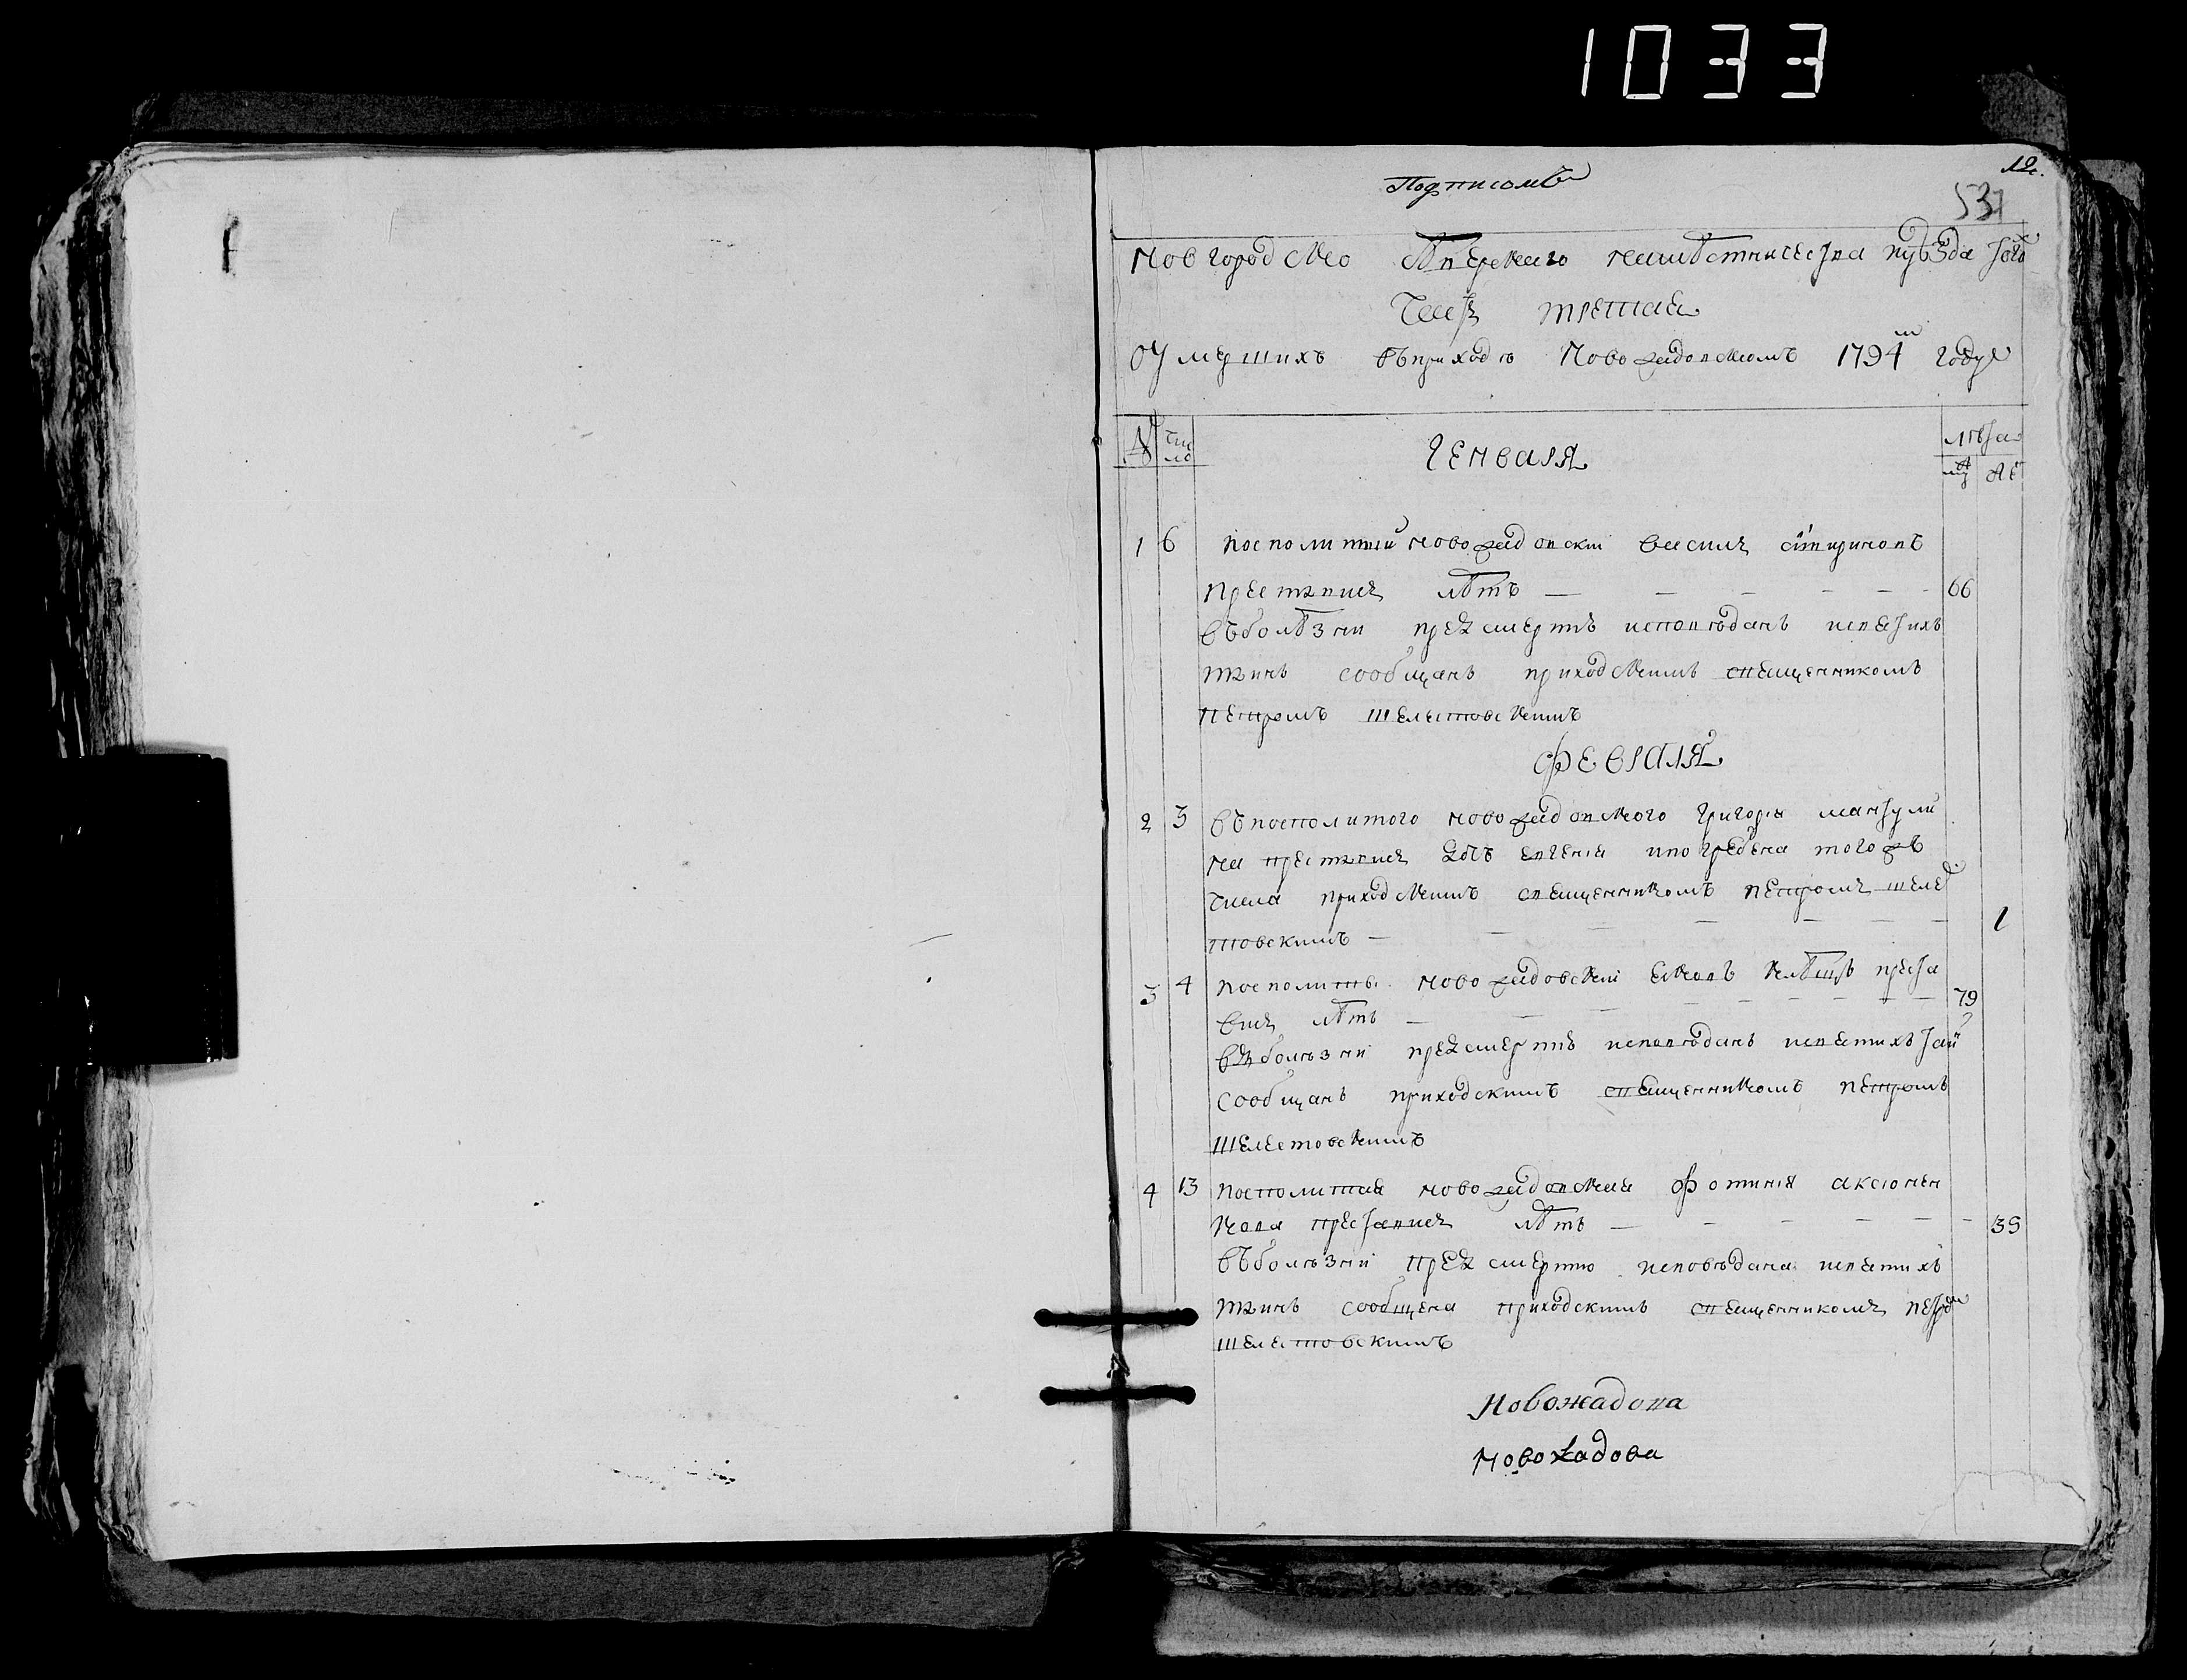 1033
12.
537
Подписомъ
Новгородско Сѣверскаго намѣстничества и уѣзда того
Часть третая
Оумершихъ въ приходѣ Новожадовскомъ 1794м году
№ число Генваря лѣта
му же
1 6 посполитый новожадовскій василь
преставися лѣтъ — — — — — 66
въ болѣзни предъ смертѣ исповѣданъ и святихъ
таинъ сообщанъ приходскимъ священникомъ
петромъ Шелестовскимъ
февраля
2 3 въ посполитого новожадовского григорія манзули
на преставися дочь евгенія и погребена того жъ
числа приходскимъ священникомъ петромъ шелес
товскимъ — — — — — 1
3 4 посполиты новожадовскій преста
вися лѣтъ — — — — — 79
въ болѣзни предъ смертѣ исповѣданъ и святихъ таи
сообщанъ приходскимъ священникомъ петромъ
Шелестовскимъ
4 13 посполитая новожадовская фотинія аксюнен
кова преставися лѣтъ — — — — — 39
въ болѣзни предъ смертю исповѣдана и святихъ
таинъ сообщена приходскимъ священникомъ петром
шелестовскимъ
Новожадова
Новожадова